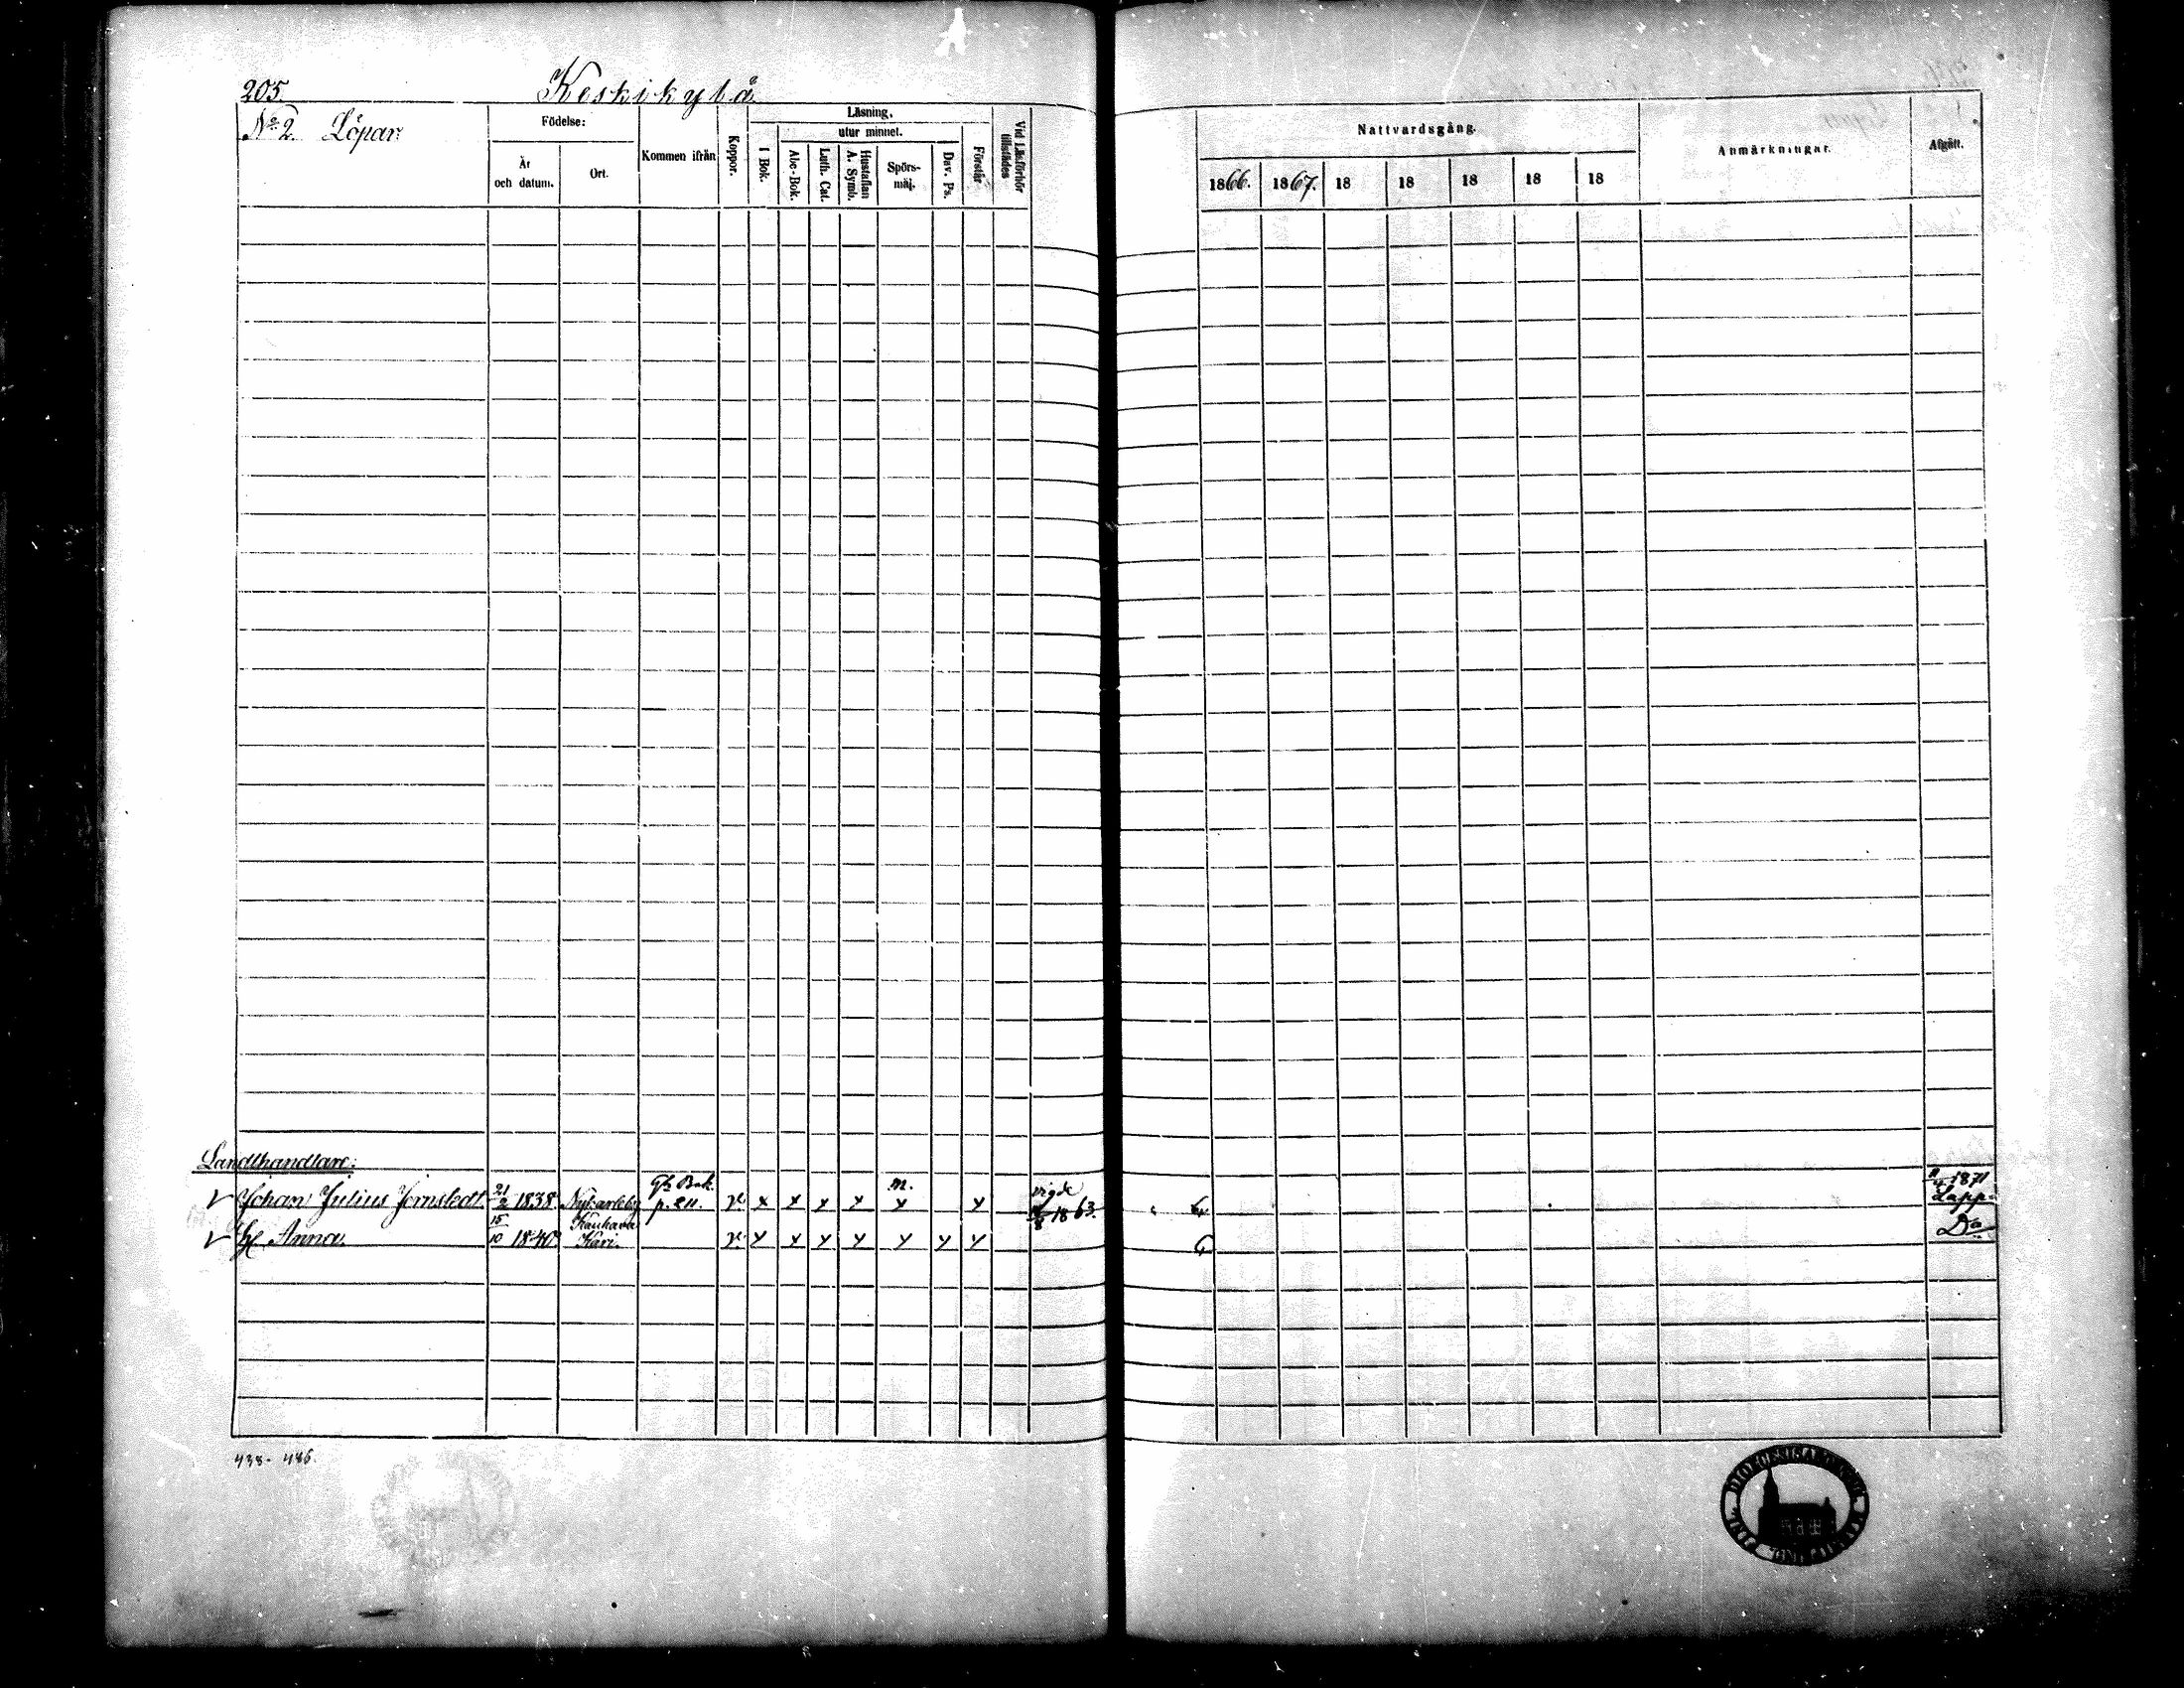 205.
Keskikylä
No 2. Löpar.
Födelse:
År och datum.
Ort.
Kommen ifrån
Koppor.
Läsning,
utur minnet.
I Bok.
Abc-Bok.
Luth. Cat.
Hustaflan A. Symb.
Spörsmåj.
Dav. Ps.
Förstår
Vid Läsförhör tillstädes
Nattvardsgång.
1866. 1867. 18 18 18 18 18
Anmärkningar.
Afgått.
Landthandlare:
Johan Julius Jernstedt. 21/2 1838 Nykarleby Gla Bok. p. 211. m. vigde 1863. 1871 Lapp-
H. Anna. 15/10 1840 Kauhava Kari. Do
438- 486.